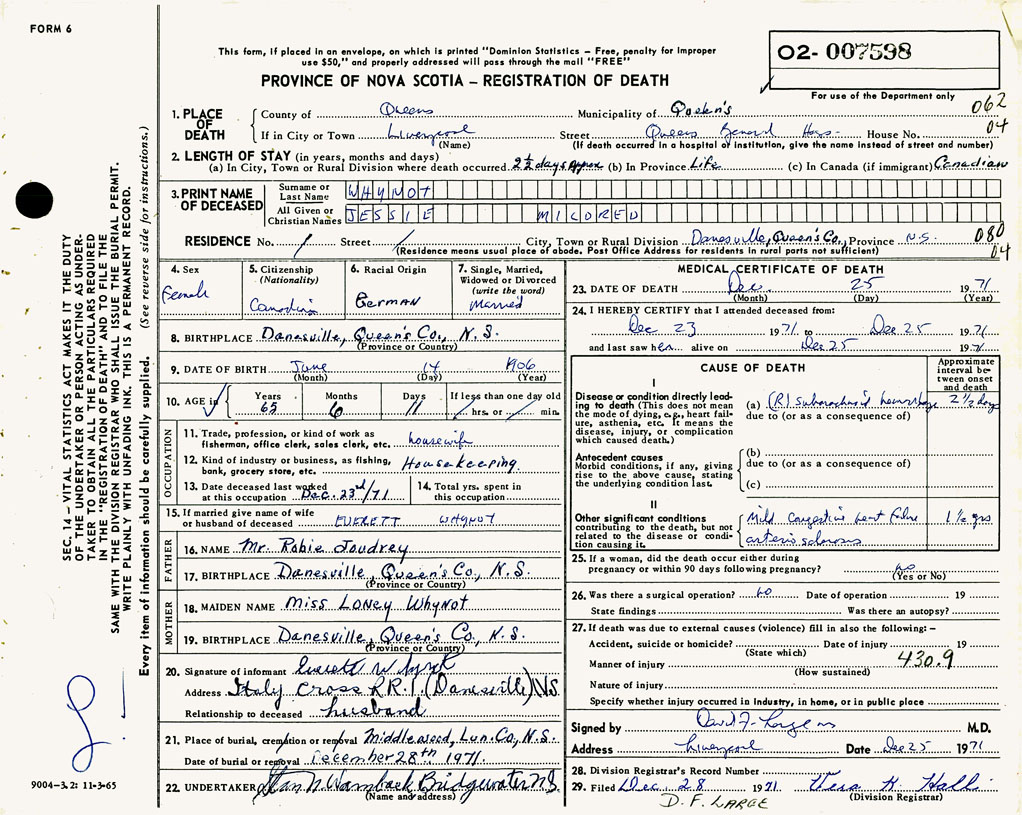 FORM 6
This form, if placed in an envelope, on which is printed "Dominion Statistics – Free, penalty for improper
use $50," and properly addressed will pass through the mail "FREE"
PROVINCE OF NOVA SCOTIA – REGISTRATION OF DEATH
02- 007598
For use of the Department only
062
04
1. PLACE OF DEATH
County of Queens Municipality of Queen's
If in City or Town Liverpool Street Queens General Hosp. House No.
(Name) (If death occurred in a hospital or institution, give the name instead of street and number)
2. LENGTH OF STAY (in years, months and days)
(a) In City, Town or Rural Division where death occurred 2½ days Appox (b) In Province Life (c) In Canada (if immigrant) Canadian
3. PRINT NAME OF DECEASED
Surname or Last Name WHYNOT
All Given or Christian Names JESSIE MILDRED
RESIDENCE No. / Street / City, Town or Rural Division Danesville, Queen's Co., Province N.S. 080
(Residence means usual place of abode. Post Office Address for residents in rural parts not sufficient) 04
4. Sex
Female
5. Citizenship
(Nationality)
Canadian
6. Racial Origin
German
7. Single, Married,
Widowed or Divorced
(write the word)
Married
8. BIRTHPLACE Danesville, Queen's Co., N.S.
(Province or Country)
9. DATE OF BIRTH June 14 1906
(Month) (Day) (Year)
10. AGE in Years Months Days If less than one day old
65 6 11 hrs. or min.
OCCUPATION
11. Trade, profession, or kind of work as
fisherman, office clerk, sales clerk, etc. housewife
12. Kind of industry or business, as fishing,
bank, grocery store, etc. Housekeeping
13. Date deceased last worked
at this occupation Dec. 23rd/71
14. Total yrs. spent in
this occupation
15. If married give name of wife
or husband of deceased EVERETT WHYNOT
FATHER
16. NAME Mr. Robie Joudrey
17. BIRTHPLACE Danesville, Queen's Co., N.S.
(Province or Country)
MOTHER
18. MAIDEN NAME Miss Loney Whynot
19. BIRTHPLACE Danesville, Queen's Co., N.S.
(Province or Country)
20. Signature of informant Everett Whynot
Address Italy Cross R.R.1, (Danesville) N.S.
Relationship to deceased husband
21. Place of burial, cremation or removal Middlewood, Lun. Co., N.S.
Date of burial or removal December 28th 1971.
22. UNDERTAKER Stan N. Wamback Bridgewater N.S.
(Name and address)
MEDICAL CERTIFICATE OF DEATH
23. DATE OF DEATH Dec. 25 1971
(Month) (Day) (Year)
24. I HEREBY CERTIFY that I attended deceased from:
Dec 23 1971 to Dec 25 1971
and last saw her alive on Dec 25 1971
CAUSE OF DEATH
Approximate
interval be-
tween onset
and death
I
Disease or condition directly lead-
ing to death (This does not mean
the mode of dying, e.g., heart fail-
ure, asthenia, etc. It means the
disease, injury, or complication
which caused death.)
(a) (R) subarachnoid hemorrhage 2½ days
due to (or as a consequence of)
Antecedent causes
Morbid conditions, if any, giving
rise to the above cause, stating
the underlying condition last.
(b)
due to (or as a consequence of)
(c)
II
Other significant conditions
contributing to the death, but not
related to the disease or condi-
tion causing it.
Mild Congestive heart failure 1½ yrs
arteriosclerosis
25. If a woman, did the death occur either during
pregnancy or within 90 days following pregnancy? no
(Yes or No)
26. Was there a surgical operation? no Date of operation 19
State findings Was there an autopsy?
27. If death was due to external causes (violence) fill in also the following: –
Accident, suicide or homicide? Date of injury 19
(State which)
Manner of injury 430.9
(How sustained)
Nature of injury
Specify whether injury occurred in industry, in home, or in public place
Signed by David F. Large M.D.
Address Liverpool Date Dec 25 1971
28. Division Registrar's Record Number
29. Filed Dec. 28 1971 Vera H. Hall
(Division Registrar)
D. F. LARGE
SEC. 14 – VITAL STATISTICS ACT MAKES IT THE DUTY
OF THE UNDERTAKER OR PERSON ACTING AS UNDER-
TAKER TO OBTAIN ALL THE PARTICULARS REQUIRED
IN THE "REGISTRATION OF DEATH" AND TO FILE THE
SAME WITH THE DIVISION REGISTRAR WHO SHALL ISSUE THE BURIAL PERMIT.
WRITE PLAINLY WITH UNFADING INK. THIS IS A PERMANENT RECORD.
Every item of information should be carefully supplied. (See reverse side for instructions.)
9004-3.2: 11-3-65